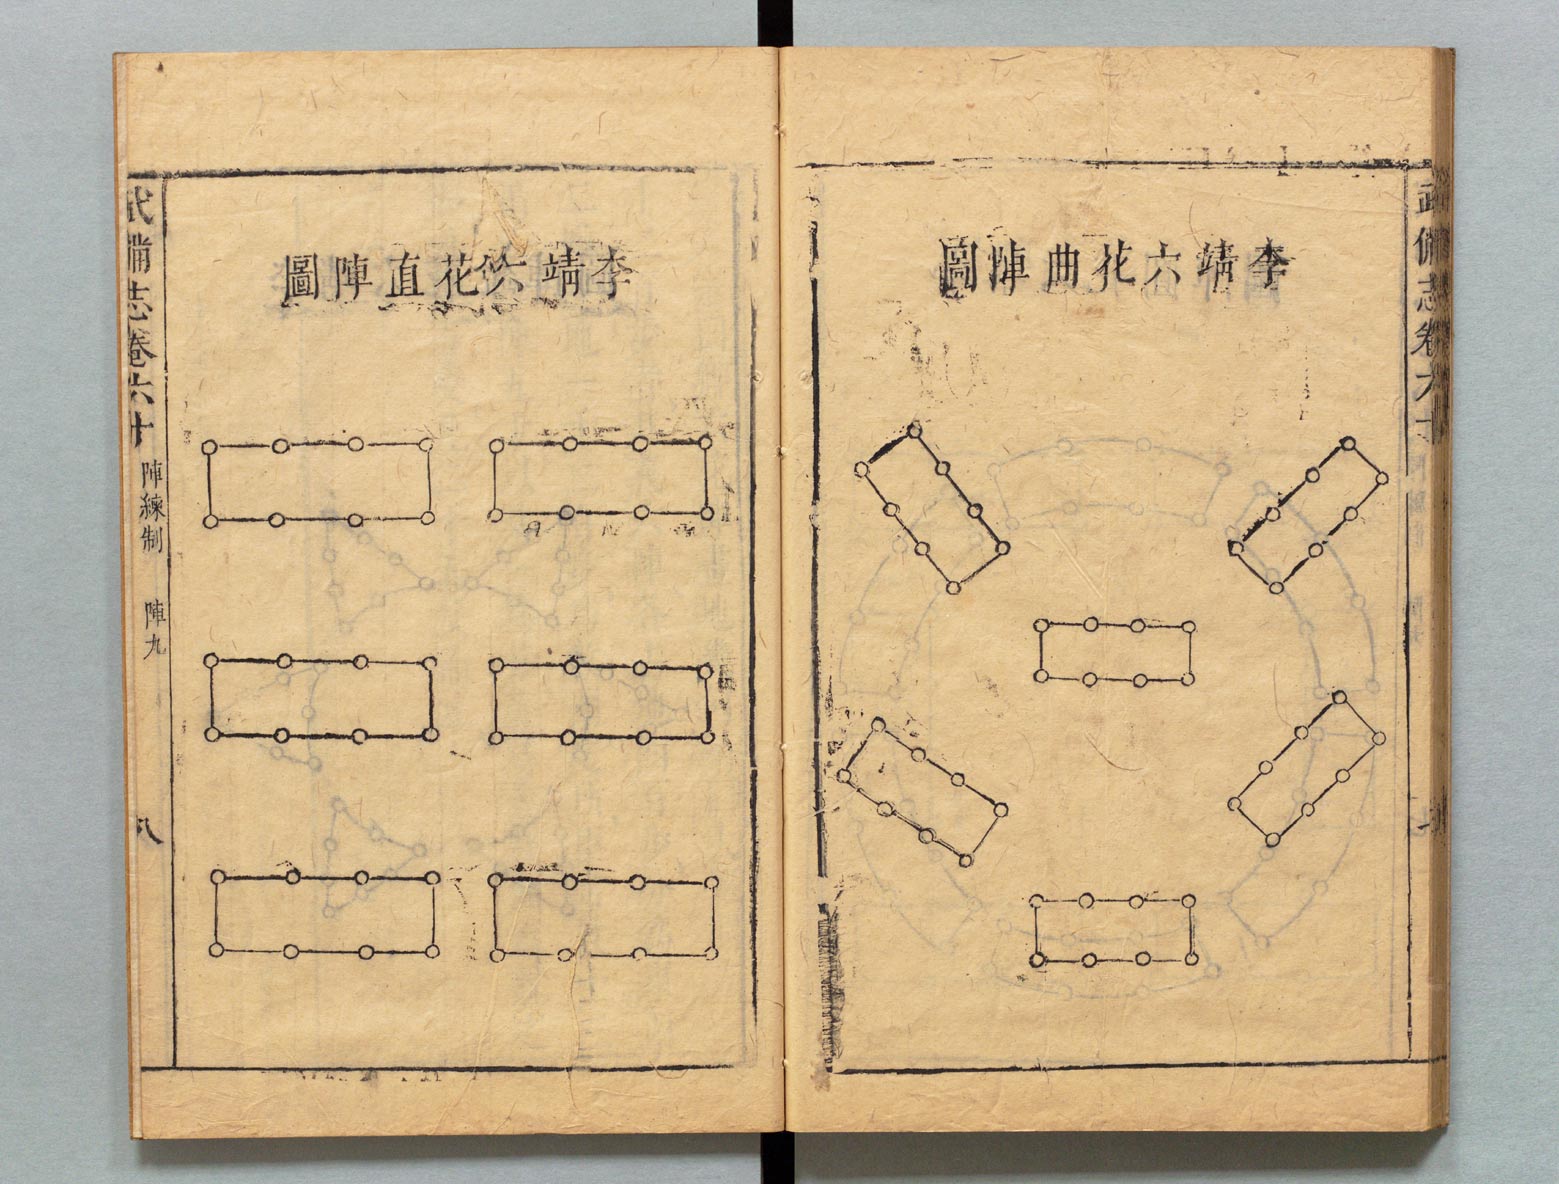 李靖六花曲陣圖
武備志卷六十
李靖六花直陣圖
武備志卷六十
陣練制
陣九
八